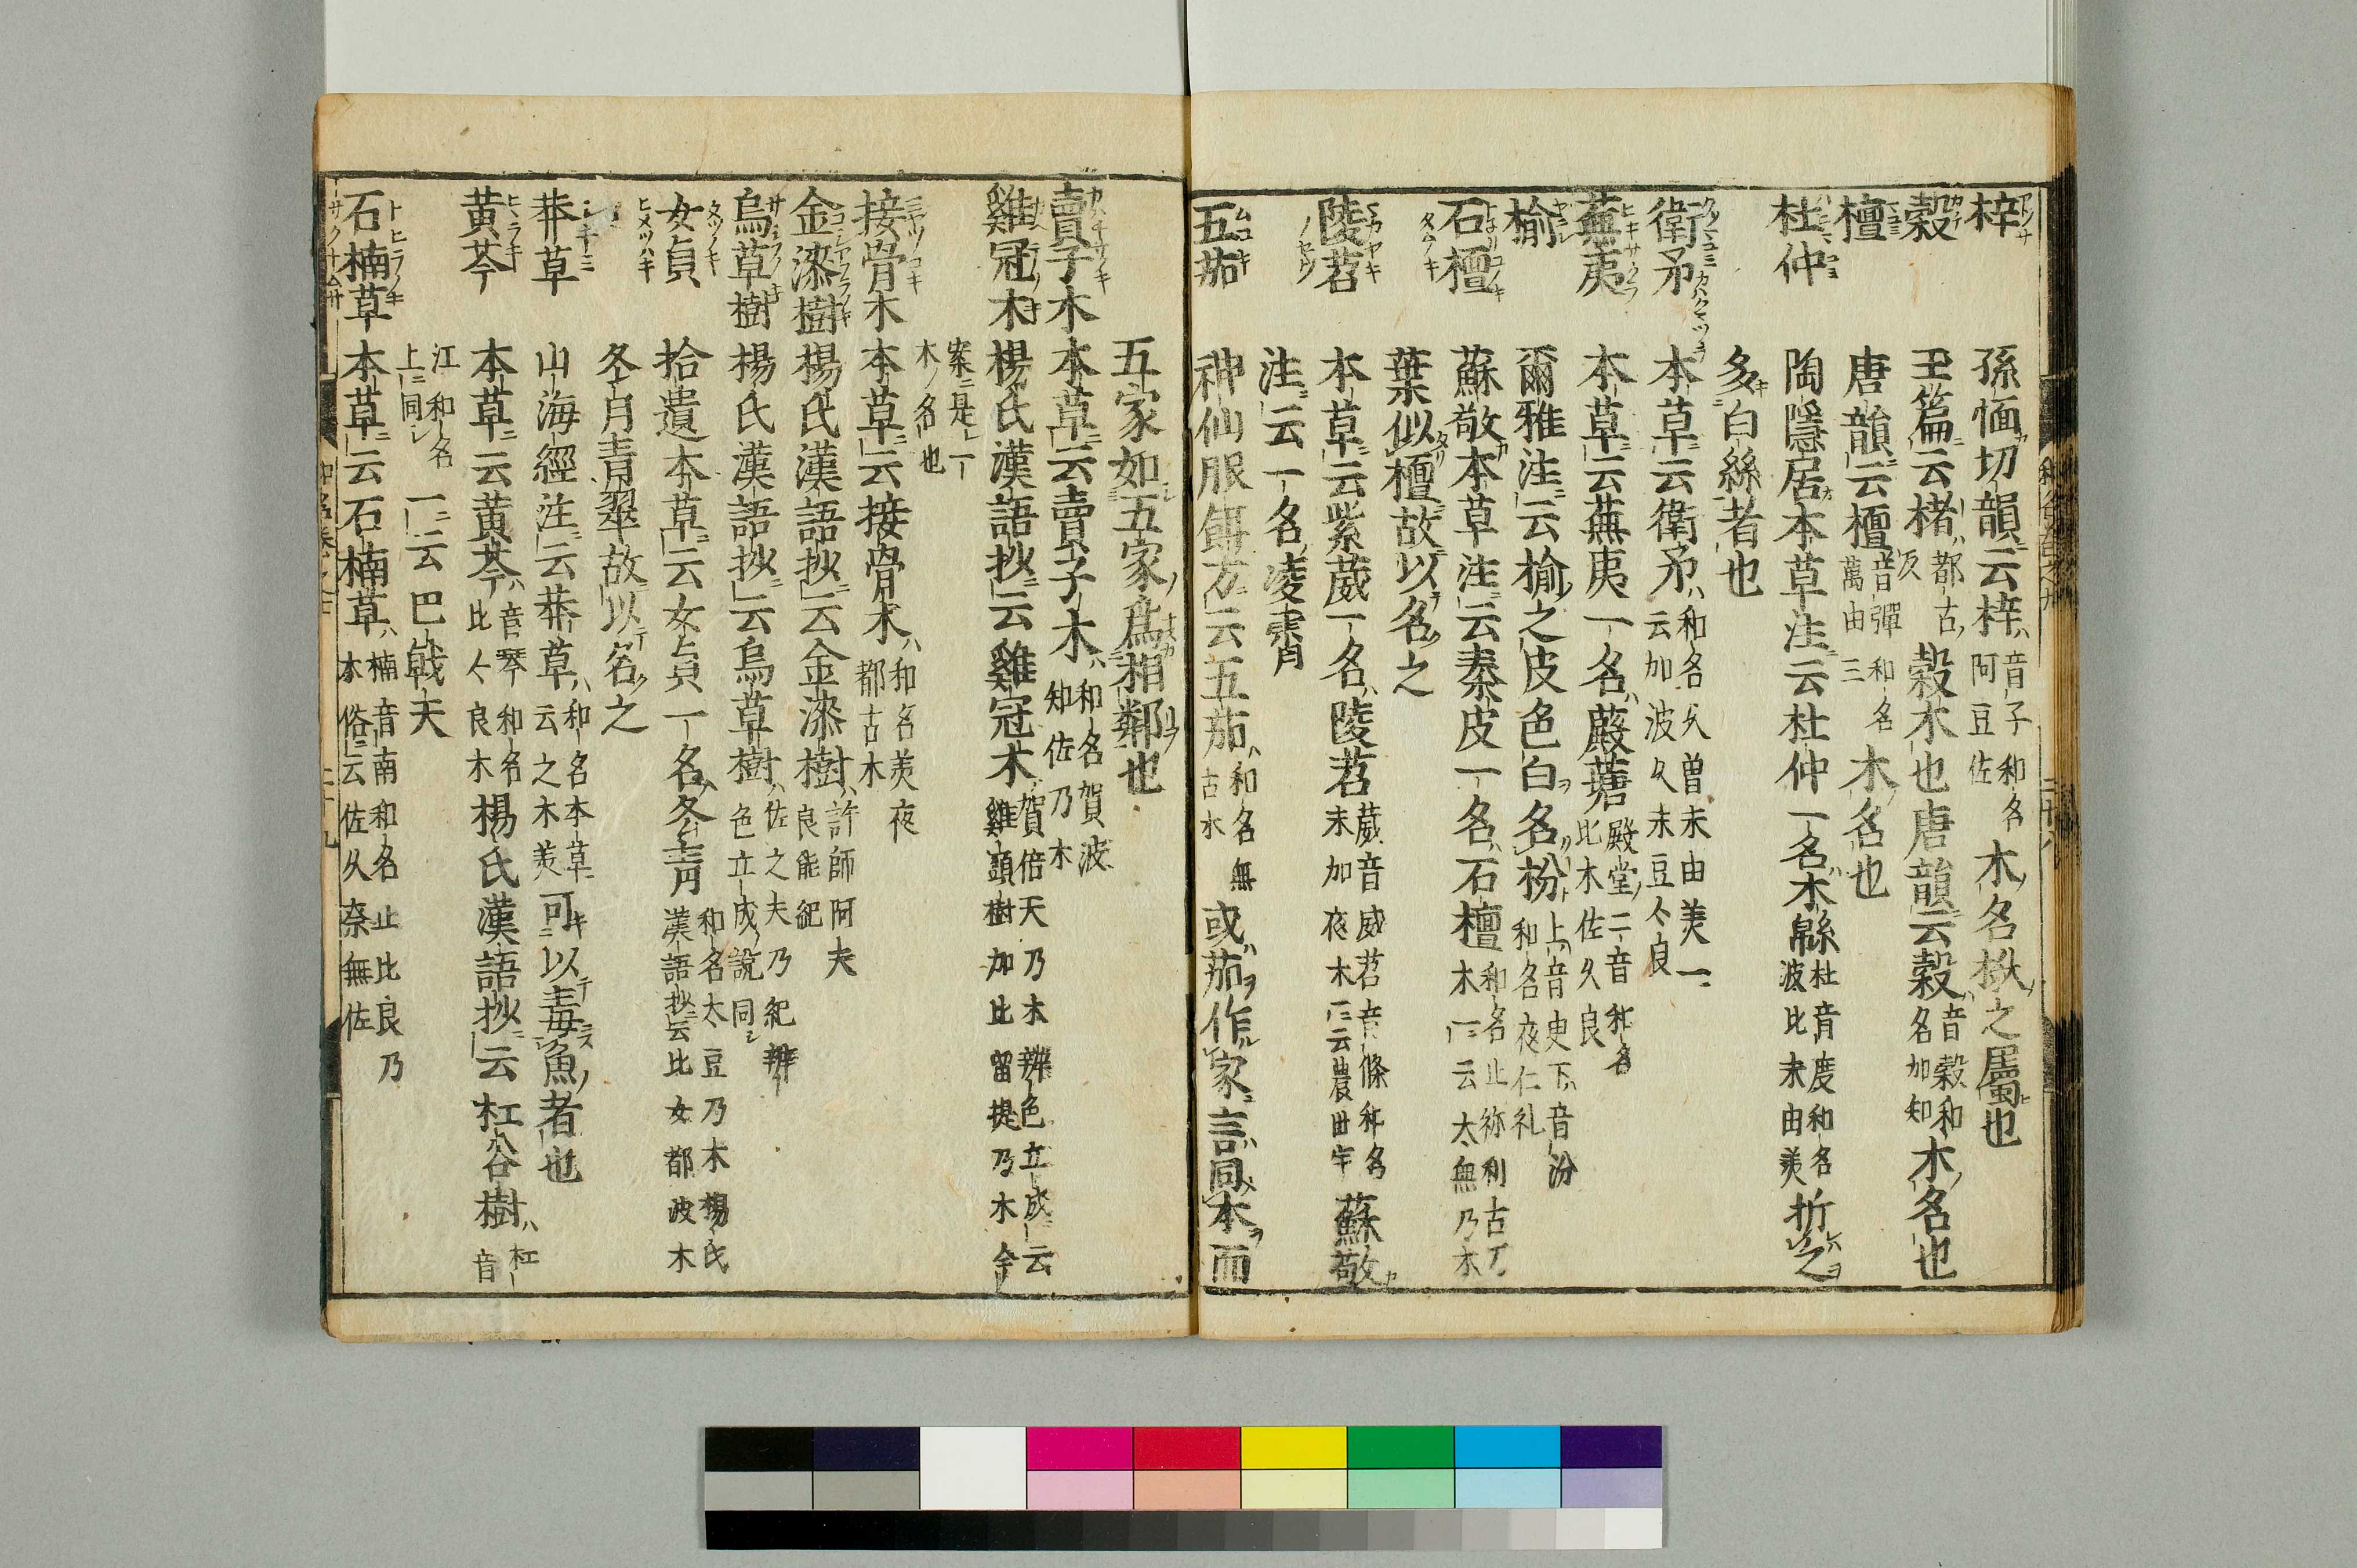 梓 孫愐切韻云梓音子和名阿豆佐木名楸之属也
穀 玉篇云楮都古反穀木也唐韻云穀音穀和名加知木名也
檀 唐韻云檀音彈和名萬由三木名也
杜仲 陶隱居本草注云杜仲一名木緜杜音度和名波比末由美折之
多白絲者也
衛矛 本草云衛矛和名久曽末由美一云加波久末豆々良
蕪荑 本草云蕪荑一名蕿䕋殿堂二音和名比木佐久良
榆 爾雅注云榆之皮色白名枌上音臾下音汾和名夜仁礼
石檀 蘇敬本草注云秦皮一名石檀和名止祢利古乃木一云太無乃木
葉似檀故以名之
陵苕 本草云紫葳一名陵苕葳音威苕音條和名末加夜木一云農世宇蘇敬
注云一名凌霄
五茄 神仙服餌方云五茄和名無古木或茄作家言同本而
五家如五家爲相鄰也
賣子木 本草云賣子木和名賀波知佐乃木
雞冠木 楊氏漢語抄云雞冠木賀倍天乃木辨色立成云雞頭樹加比留提乃木今
案是一木名也
接骨木 本草云接骨木和名美夜都古木
金漆樹 楊氏漢語抄云金漆樹許師阿夫良能紀
烏草樹 楊氏漢語抄云烏草樹佐之夫乃紀辨色立成説同
女貞 拾遺本草云女貞一名冬青和名太豆乃木楊氏漢語抄云比女都波木
冬月青翠故以名之
莽草 山海經注云莽草和名本草云之木美可以毒魚者也
黄芩 本草云黄芩音琴和名比々良木楊氏漢語抄云杠谷樹杠音
江和名上同一云巴戟天
石楠草 本草云石楠草楠音南和名止比良乃木俗云佐久奈無佐